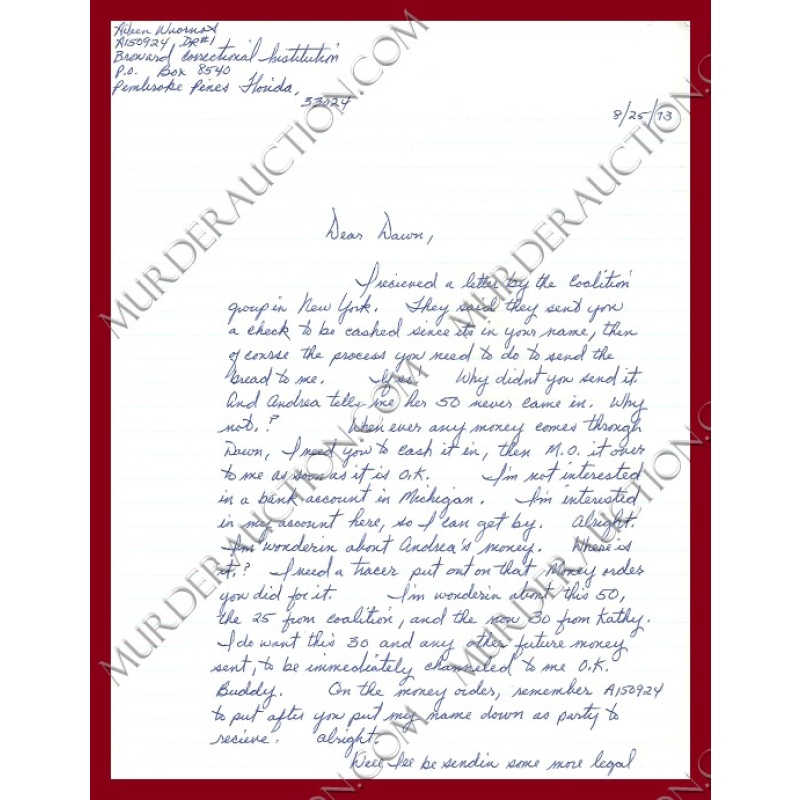 Aileen Wuornos
A150924 DR#1
Broward Correctional Institution
P.O. Box 8540
Pembroke Pines Florida,
33024
8/25/93
Dear Dawn,
I recieved a letter by the Coalition
group in New York. They said they sent you
a check to be cashed since its in your name, then
of course the process you need to do to send the
bread to me. Yes! Why didnt you send it.
And Andrea tells me her 50 never came in. Why
not.? When ever any money comes through
Dawn, I need you to cash it in, then M.O. it over
to me as soon as it is O.K. I'm not interested
in a bank account in Michigan. I'm interested
in my account here, so I can get by. Alright.
I'm wonderin about Andrea's money. Where is
it.? I need a tracer put out on that Money order
you did for it. I'm wonderin about this 50,
the 25 from coalition, and the now 30 from Kathy.
I do want this 30 and any other future money
sent, to be immediately channeled to me O.K.
Buddy. On the money order, remember A150924
to put after you put my name down as party to
recieve. alright.
Well, I'ee be sendin some more legal
MURDERAUCTION.COM
MURDERAUCTION.COM
MURDERAUCTION.COM
MURDERAUCTION.COM